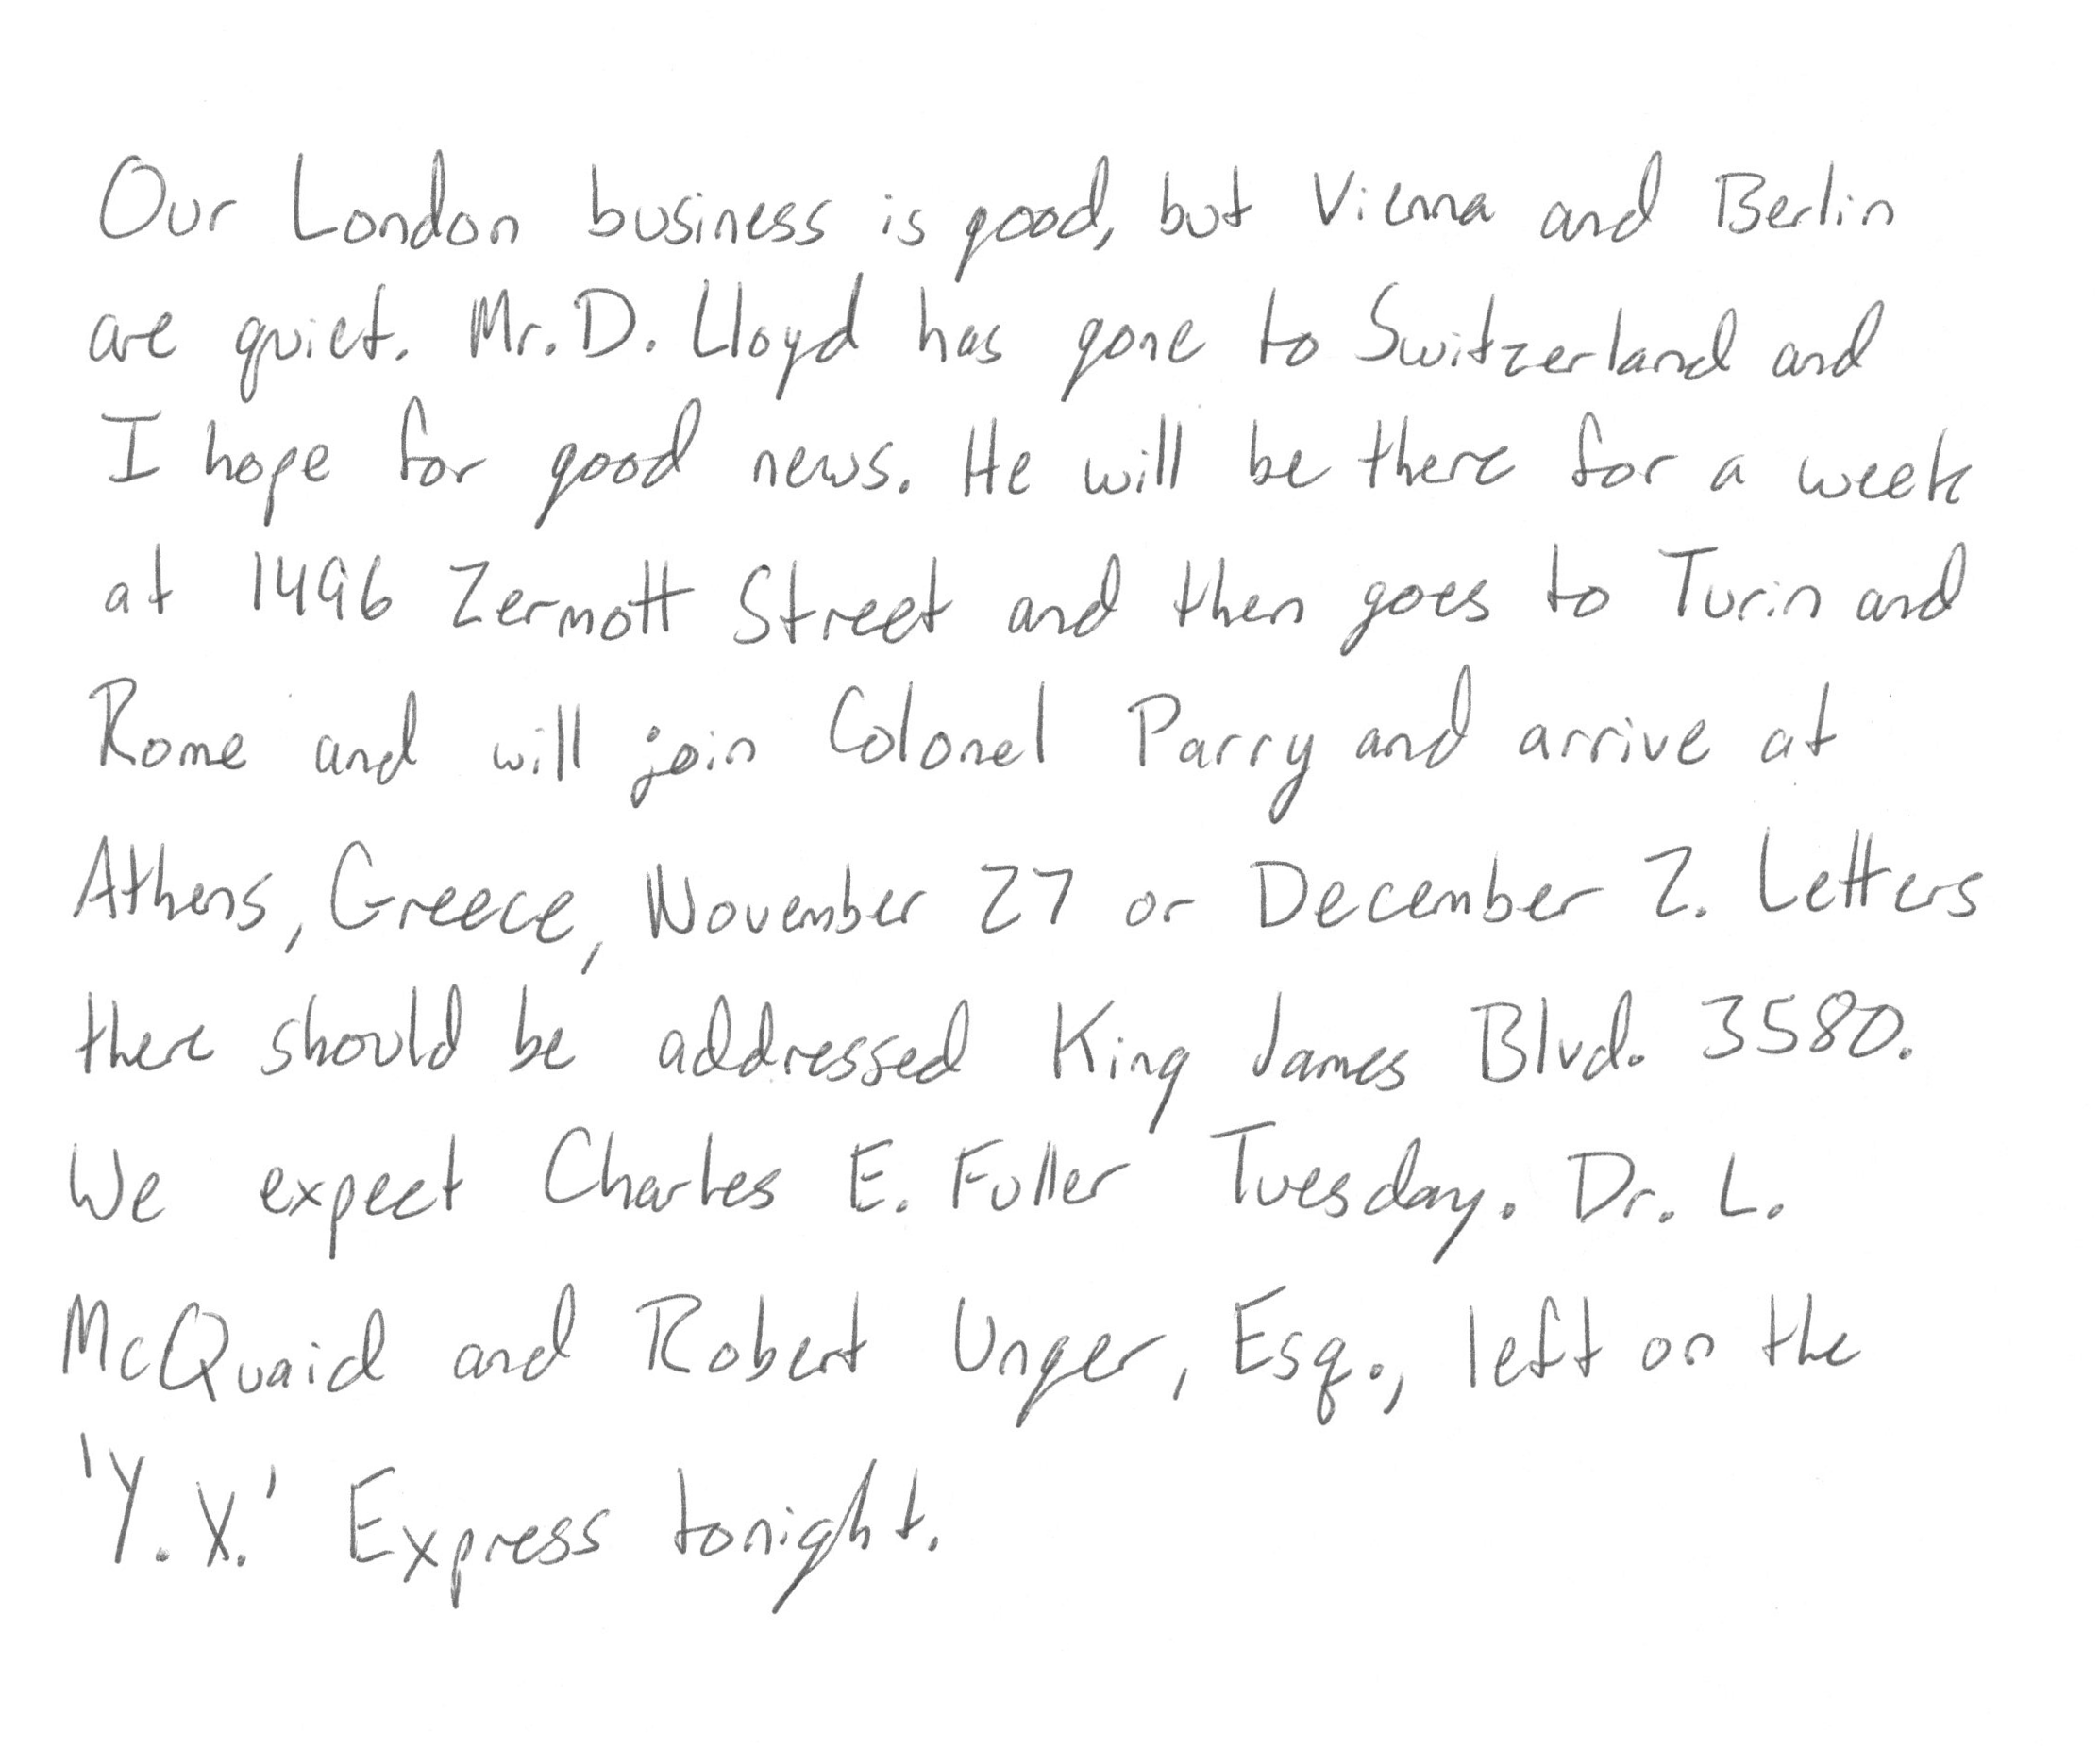 Our London business is good, but Vienna and Berlin
are quiet. Mr. D. Lloyd has gone to Switzerland and
I hope for good news. He will be there for a week
at 1496 Zermott Street and then goes to Turin and
Rome and will join Colonel Parry and arrive at
Athens, Greece, November 27 or December 2. Letters
there should be addressed King James Blvd. 3580.
We expect Charles E. Fuller Tuesday. Dr. L.
McQuaid and Robert Unger, Esq., left on the
'Y.X.' Express tonight.